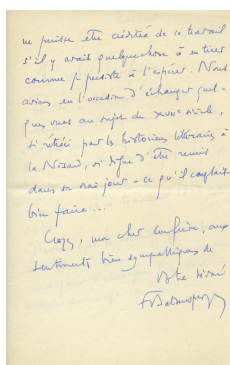 ne puisse être créditée de ce travail
s'il y avait quelque chose à en tirer
comme je persiste à l'espérer. Nous
avions eu l'occasion d'échanger quel-
ques vues au sujet du XVIIIe siècle,
si rétréci par les historiens littéraires à
la Nisard, si digne d'être remis
dans son vrai jour - ce qu'il
bien faire...
Croyez, mon cher confrère, aux
sentiments bien sympathiques de
votre dévoué
FBaldensperger